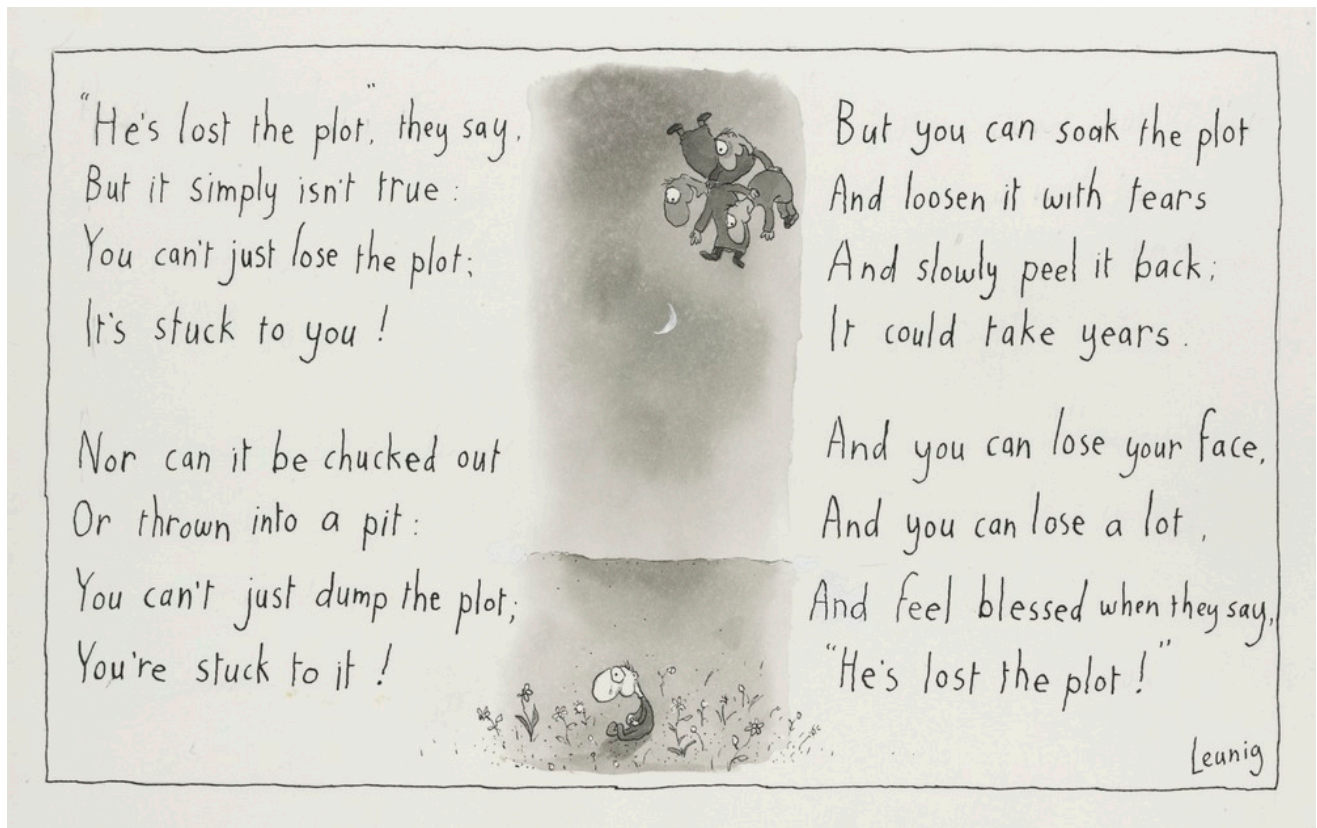 "He's lost the plot," they say,
But it simply isn't true:
You can't just lose the plot;
It's stuck to you!
Nor can it be chucked out
Or thrown into a pit:
You can't just dump the plot;
You're stuck to it!
But you can soak the plot
And loosen it with tears
And slowly peel it back;
It could take years.
And you can lose your face,
And you can lose a lot,
And feel blessed when they say,
"He's lost the plot!"
Leunig